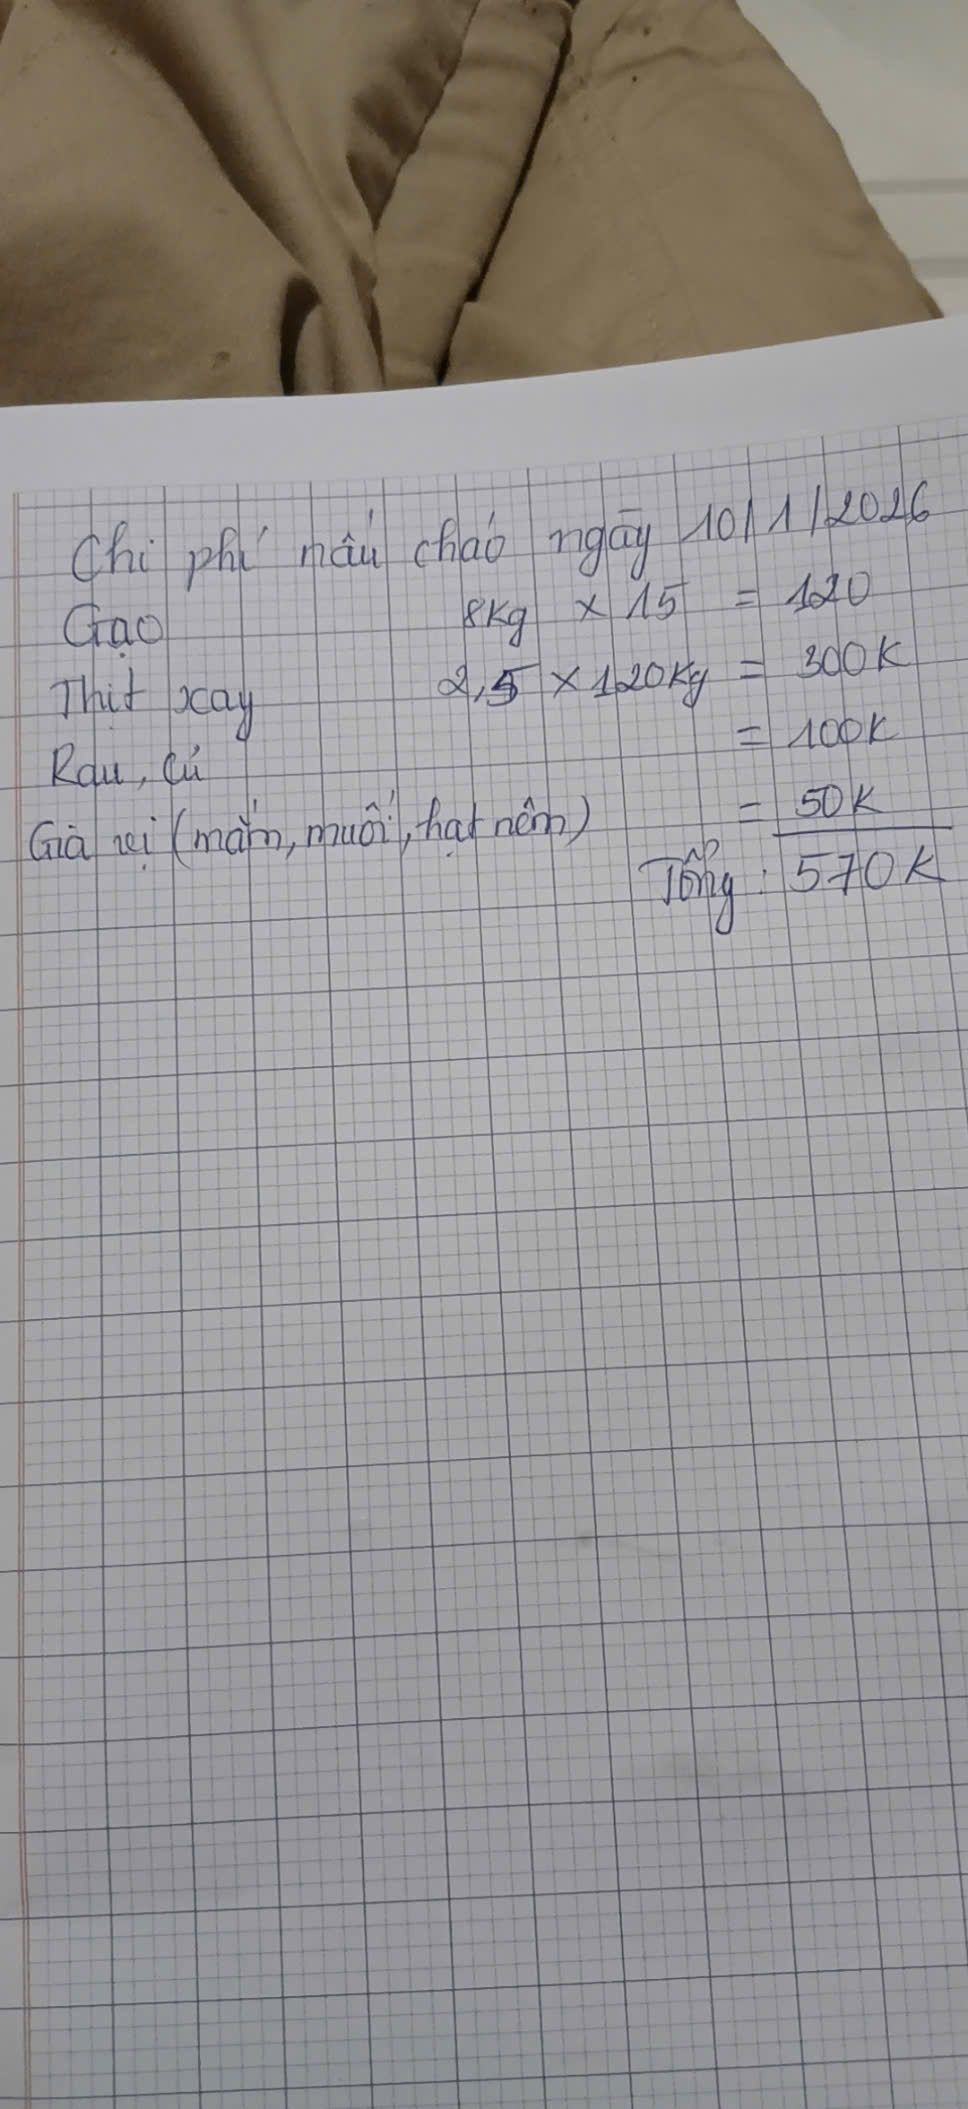 Chi phí nấu cháo ngày 10/1/2026
Gạo 8kg × 15 = 120
Thịt xay 2,5 × 120kg = 300K
Rau, củ = 100K
Gia vị (mắm, muối, hạt nêm) = 50K
Tổng: 570K